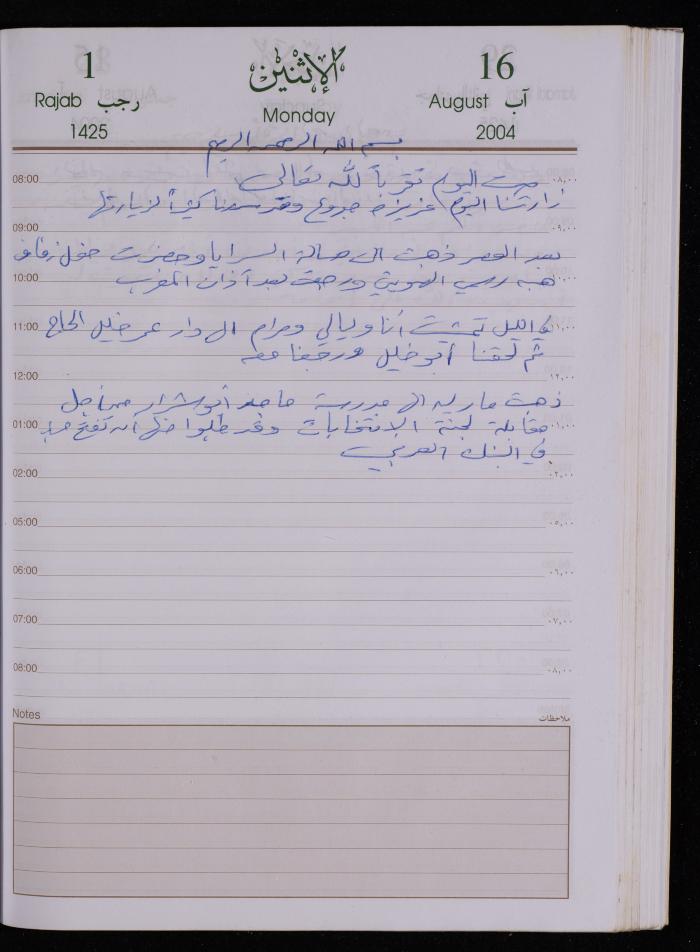 1
Rajab رجب
1425
الإثنين
Monday
16
August آب
2004
بسم الله الرحمن الرحيم
08:00 صمت اليوم تقرباً لله تعالى ٠٨,٠٠
زارتنا اليوم عزيزة جدوع وقد سعدنا كثيراً لزيارتها
09:00 ٠٩,٠٠
بعد العصر ذهبت الى صالة السرايا وحضرت حفل زفاف
10:00 هبه رسمي ورجعت بعد آذان المغرب ١٠,٠٠
11:00 في الليل تمشيت أنا وليالي ومرام الى دار عمر خليل الحاج ١١,٠٠
ثم لحقنا أبو خليل ورجعنا معه
12:00 ١٢,٠٠
ذهبت ماريه الى مدرسة ماجد أبو شرار من أجل
01:00 مقابلة لجنة الإنتخابات وقد طلبوا منها أن تفتح ٠١,٠٠
في البنك العربي
02:00 ٠٢,٠٠
05:00 ٠٥,٠٠
06:00 ٠٦,٠٠
07:00 ٠٧,٠٠
08:00 ٠٨,٠٠
Notes ملاحظات